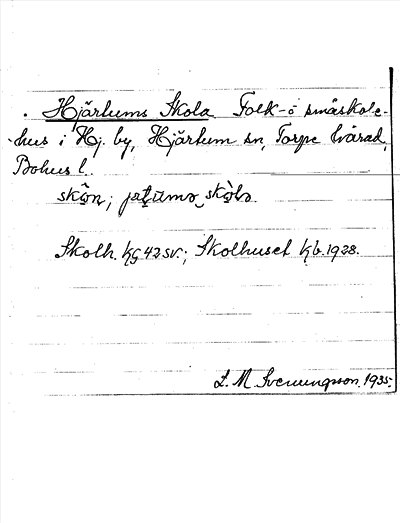 Hjärtums Skola. Folk- o småskole-
hus i Hj. by, Hjärtum sn, Torpe härad,
Bohus l.
skōn; jaʈumə skōla
Skolh. KG 42 sv.; Skolhuset Kb. 1928.
L. M. Svenungsson 1935.